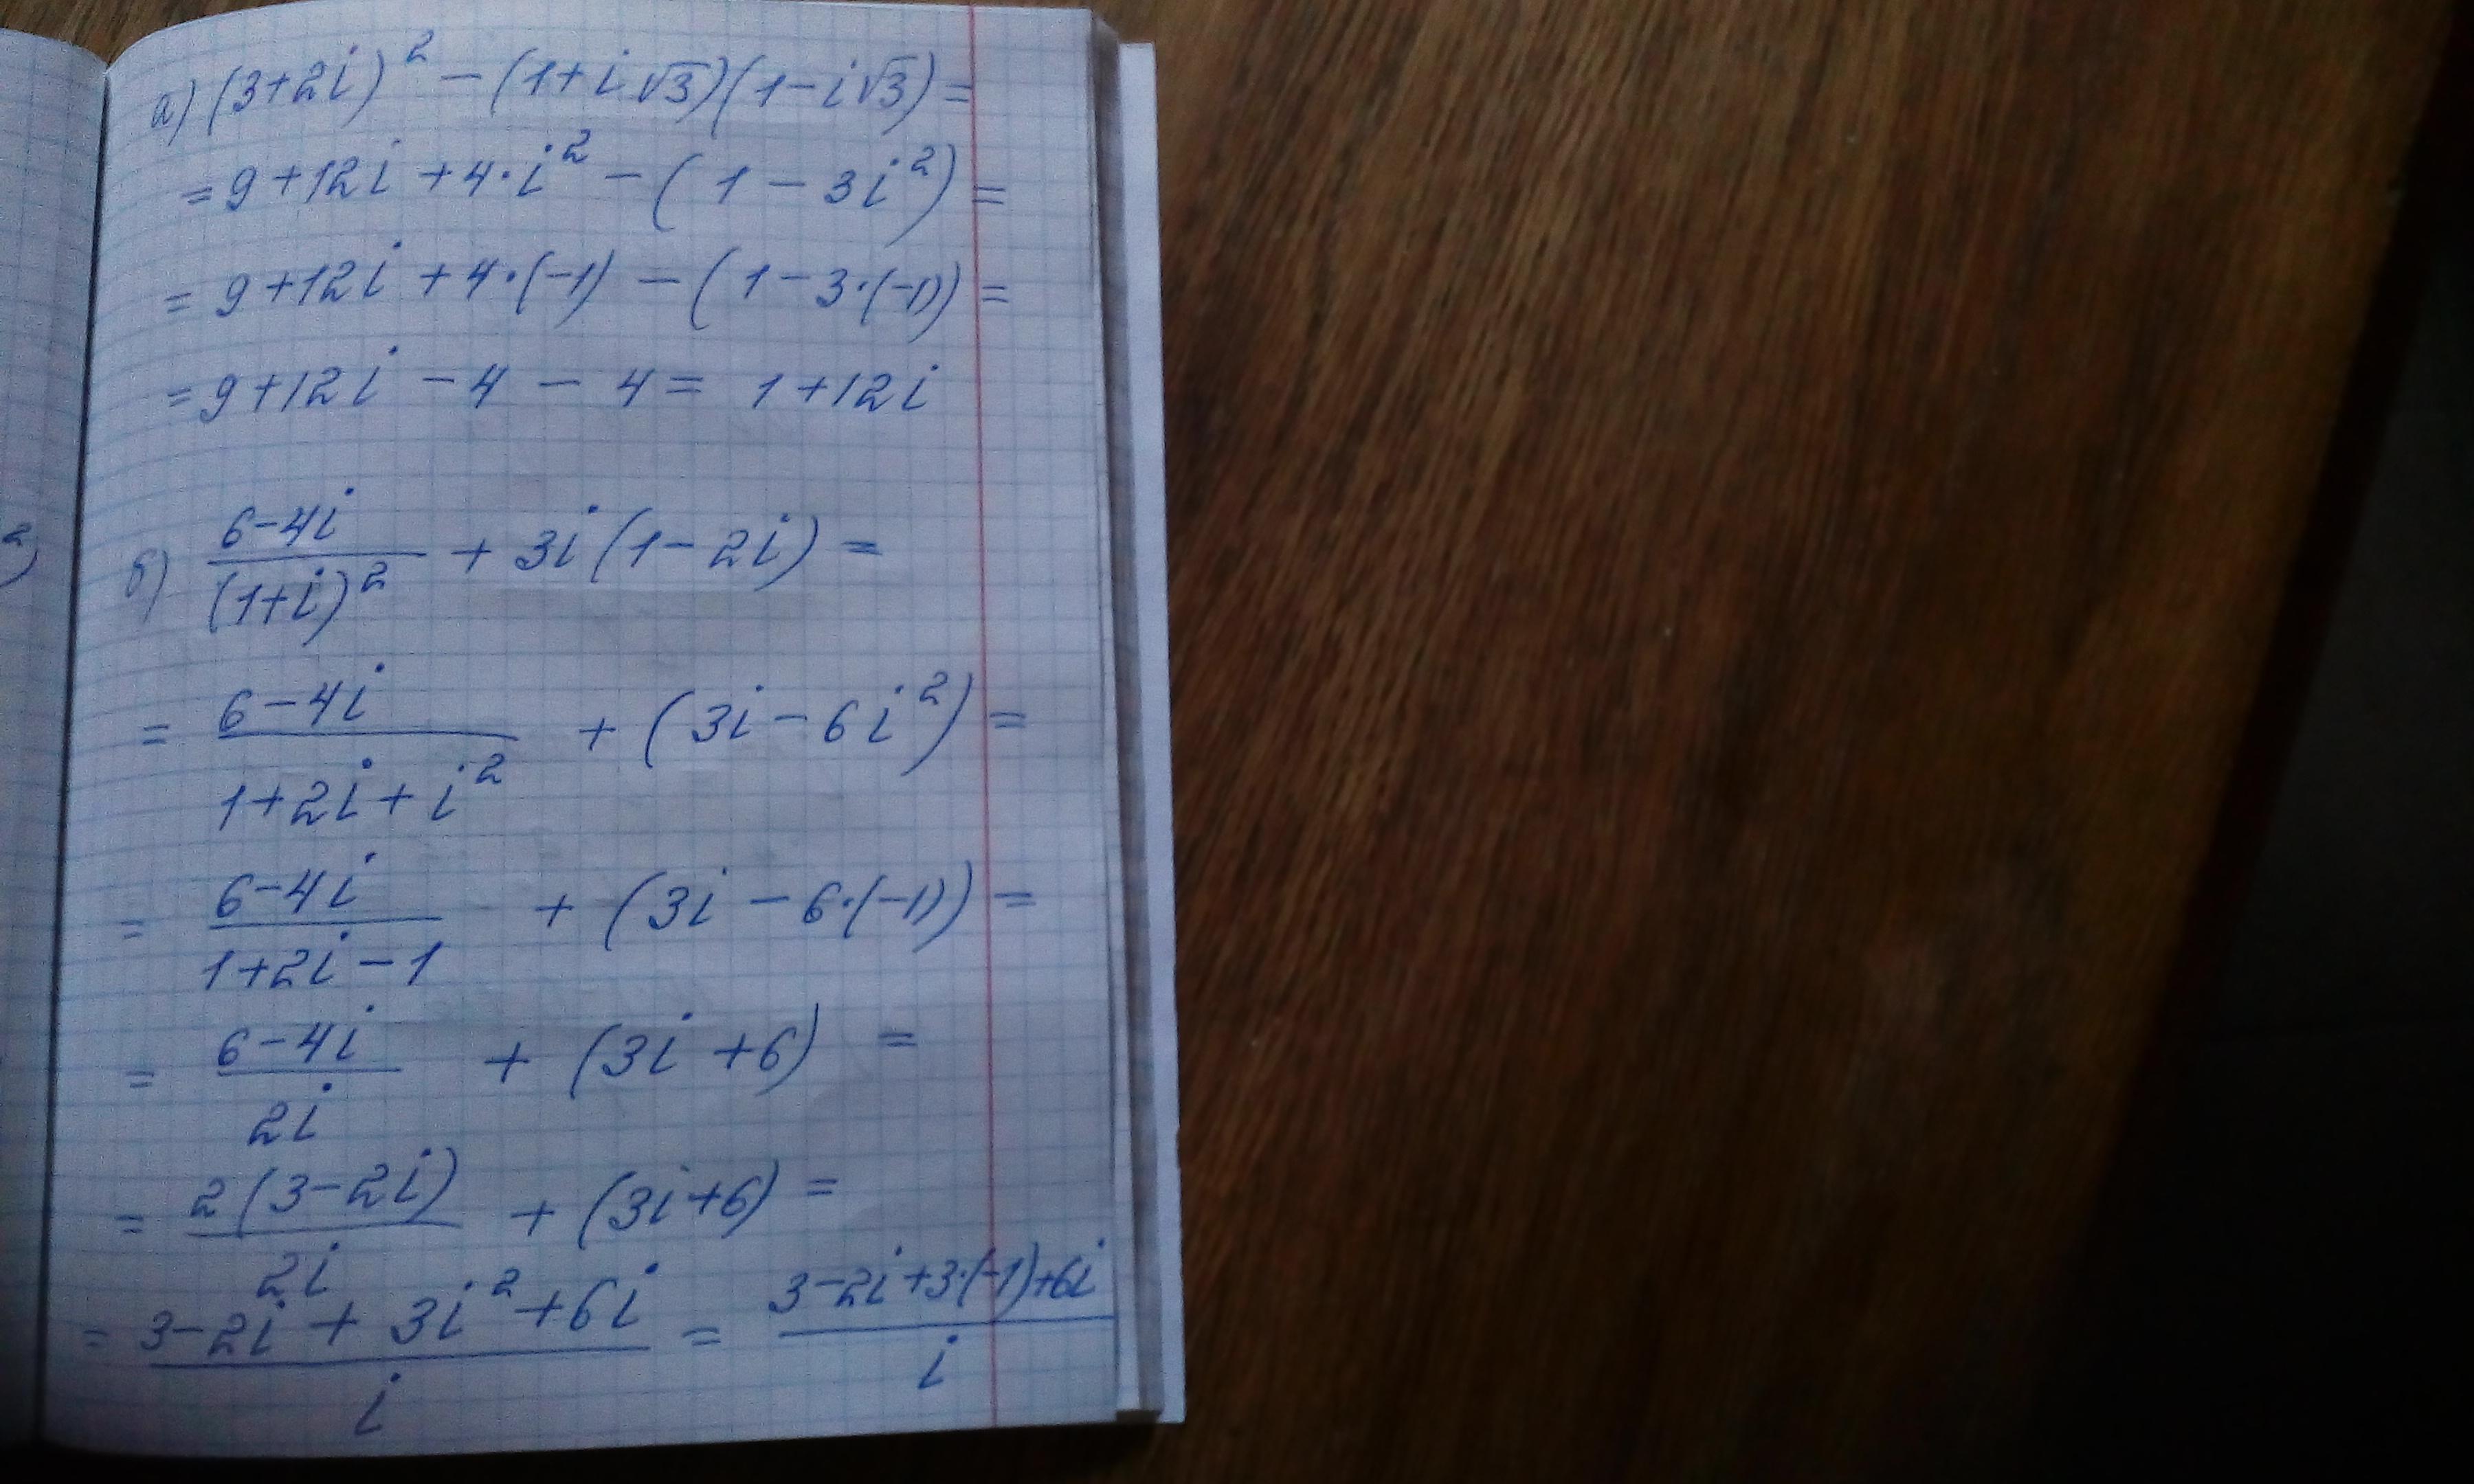 а) (3+2i)² − (1+i√3)(1−i√3) =
= 9+12i +4·i² − (1 − 3i²) =
= 9+12i +4·(−1) − (1−3·(−1)) =
= 9+12i − 4 − 4 = 1+12i
б) (6−4i)/(1+i)² + 3i(1−2i) =
= (6−4i)/(1+2i+i²) + (3i−6i²) =
= (6−4i)/(1+2i−1) + (3i − 6·(−1)) =
= (6−4i)/(2i) + (3i+6) =
= (2(3−2i))/(2i) + (3i+6) =
= (3−2i + 3i²+6i)/i = (3−2i+3·(−1)+6i)/i
²)